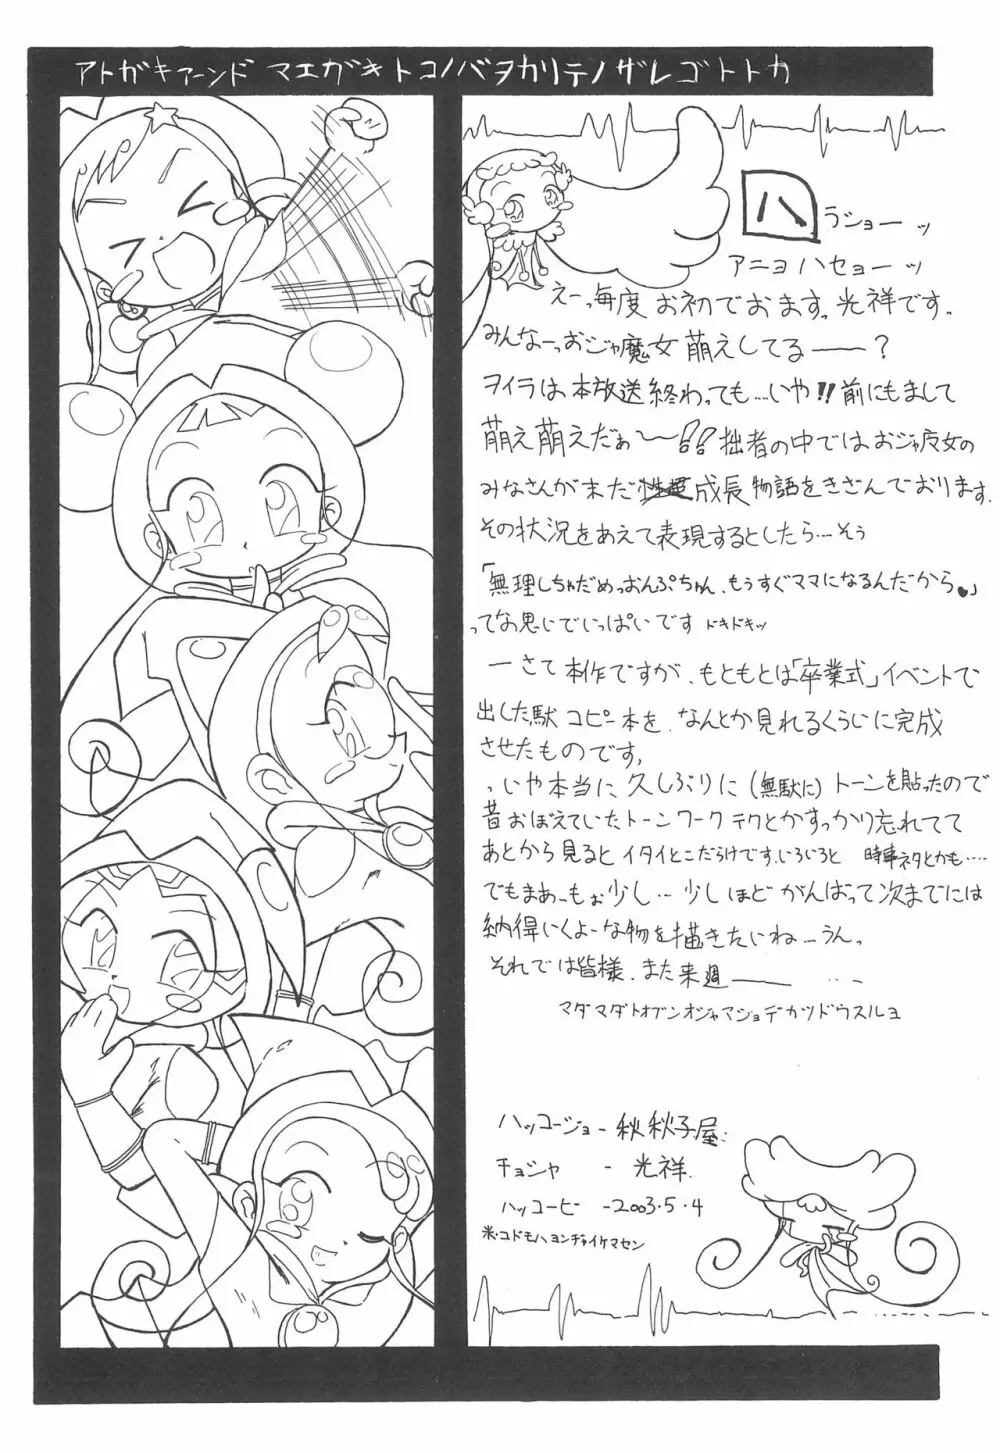 アトガキアーンド マエガキトコノバヲカリテノザレゴトトカ
ハラショーッ
アニョハセョーッ
えーっ毎度お初でおます。光祥です。
みんなーっおジャ魔女萌えしてるー？
ヲイラは本放送終わっても…いや!!前にもまして
萌え萌えだぁ〜!!拙者の中ではおジャ魔女の
みなさんが未だ成長物語をきざんでおります。
その状況をあえて表現するとしたら…そう
「無理しちゃだめっおんぷちゃん、もうすぐママになるんだから♥」
ってな思いでいっぱいです ドキドキッ
ーさて本作ですが、もともとは「卒業式」イベントで
出した駄コピー本を、なんとか見れるくらいに完成
させたものです。
いや本当に久しぶりに(無駄に)トーンを貼ったので
昔おぼえていたトーンワークテクとかすっかり忘れてて
あとから見るとイタイとこだらけです。いろいろと 時事ネタとかも….
でもまあーもぉ少し…少しほどがんばって次までには
納得いくよーな物を描きたいね…うん。
それでは皆様、また来週ー ...
マダマダトオブンオジャマジョデカツドウスルヨ
ハッコージョー秋秋子屋
チョシャ - 光祥.
ハッコービ -2003・5・4
米・コドモハヨンヂャイケマセン